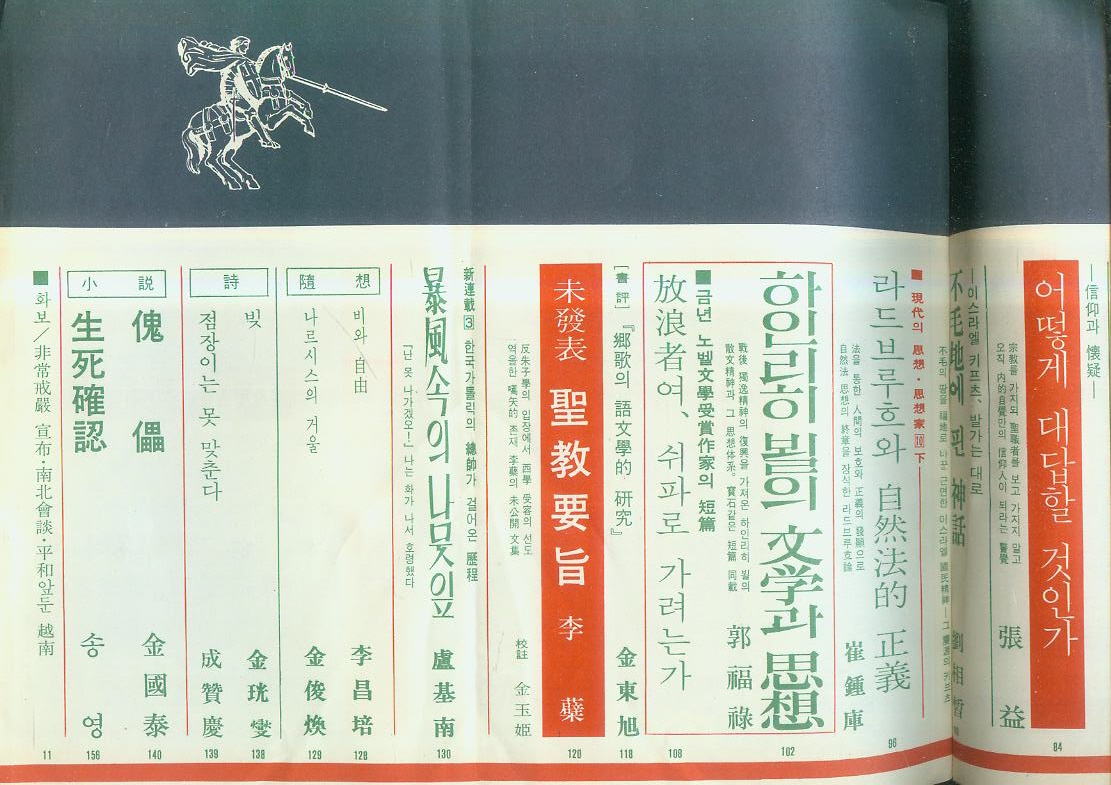 ―信仰과 懷疑―
어떻게 대답할 것인가
84
宗教를 가지되 聖職者를 보고 가지지 말고
오직 內的自覺만의 信仰人이 되라는 警覺
張益
―이스라엘 키프츠, 발가는 대로
不毛地에 핀 神話
不毛의 땅을 福地로 바꾼 근면한 이스라엘 國民精神
劉相晳
■ 現代의 思想·思想家 ⑩ 下
라드브루흐와 自然法的 正義
96
法을 통한 人間의 보호와 正義의 發顯으로
自然法 思想의 終章을 장식한 라드브루흐論
崔鍾庫
하인리히 뵐의 文学과 思想
102
戰後 獨逸精神의 復興을 가져온 하인리히 뵐의
散文精神과 그 思想体系。寶石같은 短篇 同載
郭福祿
■ 금년 노벨文學受賞作家의 短篇
放浪者여、쉬파로 가려는가
108
[書評]『鄕歌의 語文學的 研究』
金東旭
118
未發表 聖教要旨 李蘗
120
反朱子學의 입장에서 西學 受容의 선도
역을한 嚆矢的 존재 李蘗의 未公開 文集
校註 金玉姬
新連載 ③ 한국가톨릭의 總帥가 걸어온 歷程
暴風속의 나뭇잎 盧基南
130
「난 못 나가겠오!」나는 화가 나서 호령했다
隨想
비와 自由 李昌培
128
나르시스의 거울 金俊煥
129
詩
빚 金珖燮
138
점장이는 못 맞춘다 成贊慶
139
小說
傀儡 金國泰
140
生死確認 송영
156
■ 화보/非常戒嚴 宣布·南北會談·平和앞둔 越南
11